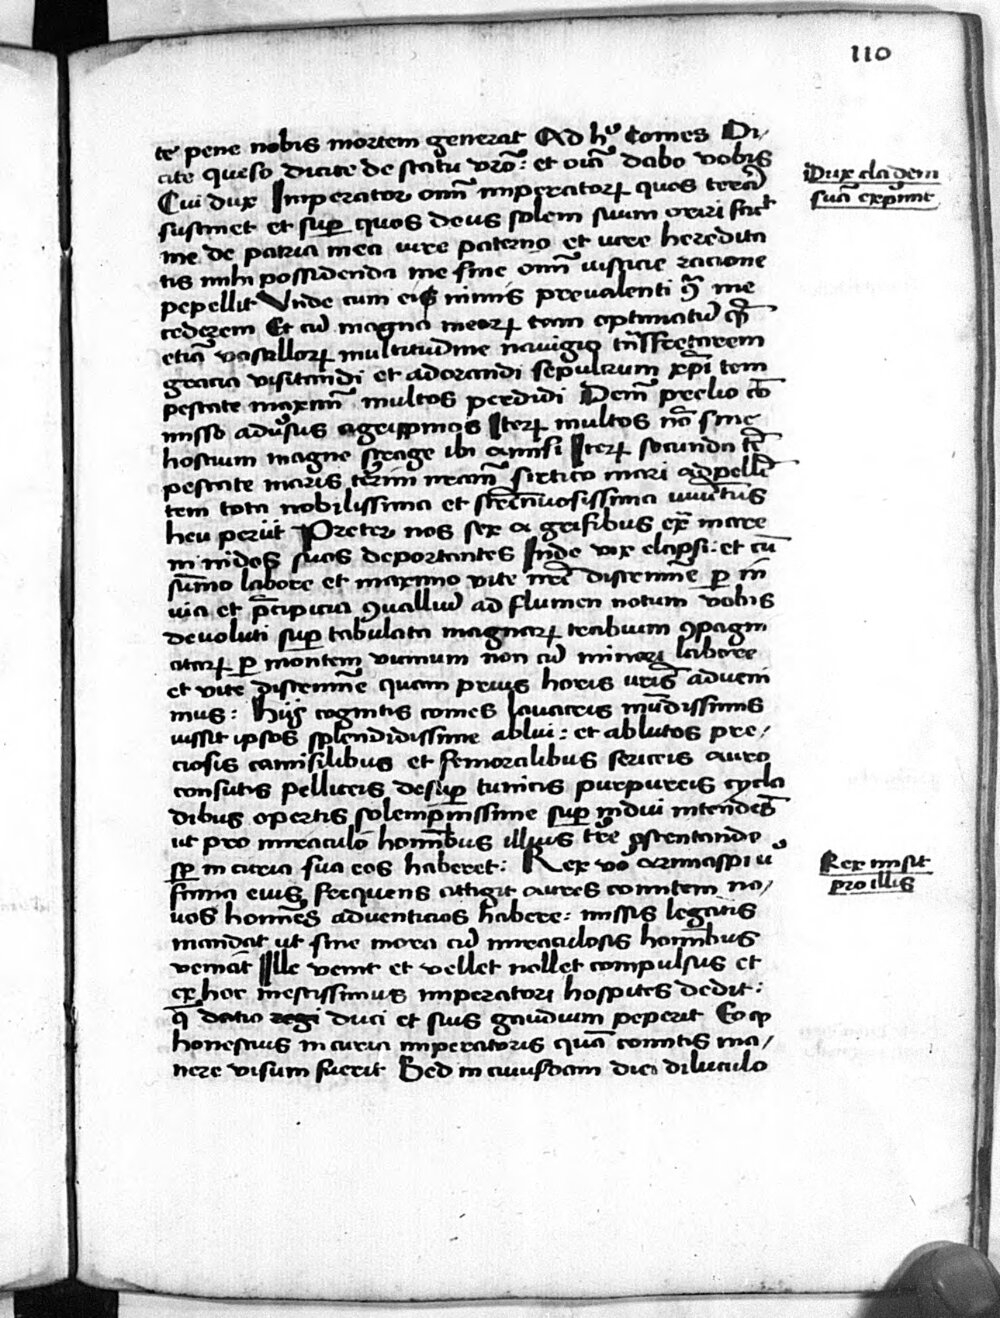 110
te pene nobis mortem generat Ad hͦ Comes Di/
cite queso dicite de statu vrõ : et oĩa dabo vobis
Cui dux Imperator om̃ imperatorꝝ quos terã
sustinet et suꝑ quos deus solem suum oriri facit
me de patria mea iure paterno et iure heredita
tis mihi possidenda me sine om̃ iusticie racione
pepellit Vnde cum eiꝰ nimis prevalenti ꝯ̃ me
cederem Et cũ magna meorꝝ tam optimatũ q̃
etiã vasallorꝝ multitudine navigio trãsfretarem
gracia visitandi et adorandi sepulcrum xp̃i tem
pestate maxim̃ multos perdidi Dem̃ prelio cõ
misso adũsus agrippinos Iterꝝ multos nõ sine
hostium magne strage ibi amisi Iterꝝ secunda tẽ
pestate maris
tem tota nobilissima et
heu periit Preter nos sex a grifibus ex mare
in nidos suos deportantes Inde vix elapsi : et cũ
sũmo labore et maximo vite nr̃e discrimĩe ꝑ in
uia et p̃cipicia ꝯualliũ ad flumen notum vobis
devoluti suꝑ tabulata magnarꝝ trabium ꝯpagin
atarꝝ ꝑ montem unum non cũ minori labore
et vite discrimĩe quam prius horis vr̃is adveni
mus : Hijs cognitis comes lavacris mũdissimis
iussit ipsos splendidissime ablui : et ablutos pre/
ciosis camisilibus et femoralibus sericis auro
consutis pelliceis desuꝑ tunicis purpureis cycla
dibus opertis solempnissime suꝑ indui intendẽs
ut pro miraculo hominibus illius tr̃e ostentande
sꝑ in curia sua eos haberet : Rex vo᷃ arimaspi ũ
fama eius frequens attigit aures comitem no/
uos homĩes adventicios habere : missis legatis
mandat ut sine mora cũ miraculosis homĩbus
veniat Ille venit et vellet nollet compulsus et
ex hoc mestissimus imperatori hospites dedit :
q̃ datio regi duci et suis gaudium peperit Eo ꝙ
honestius in curia imperatoris quã comitis ma/
nere visum fuerit Sed in cuiusdam diei diluculo
Dux cladem
suã exp̃mit
Rex misit
pro illis